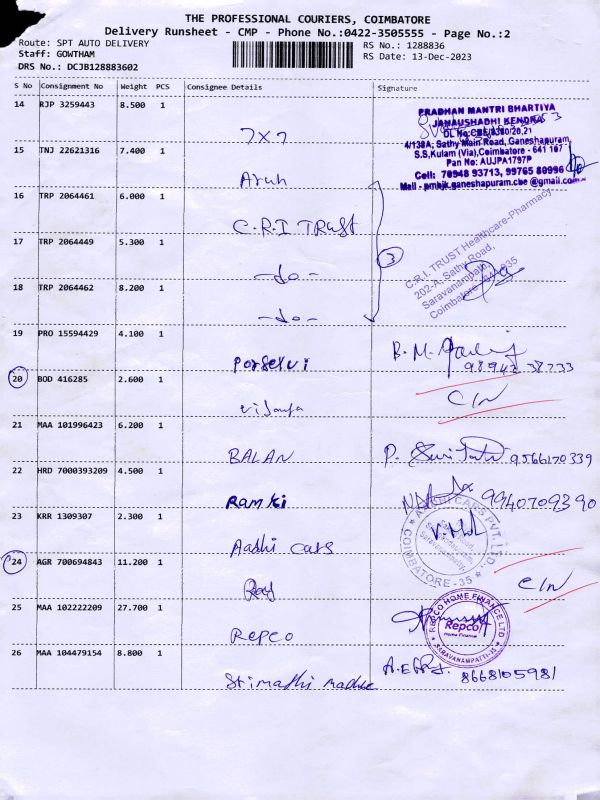 THE PROFESSIONAL COURIERS, COIMBATORE
Delivery Runsheet - CMP - Phone No.:0422-3505555 - Page No.:2
Route: SPT AUTO DELIVERY
Staff: GOWTHAM
DRS No.: DCJB128883602
RS No.: 1288836
RS Date: 13-Dec-2023
S No Consignment No Weight PCS Consignee Details Signature
14 RJP 3259443 8.500 1
7x7
PRADHAN MANTRI BHARTIYA
JANAUSHADHI KENDRA
4/138A, Sathy Main Road, Ganeshapuram,
S.S.Kulam (Via), Coimbatore - 641 107
Pan No: AUJPA1797P
Cell: 70948 93713, 99765 80996
Mail - pmbjk.ganeshapuram.cbe @gmail.com
15 TNJ 22621316 7.400 1
Arun
16 TRP 2064461 6.000 1
C.R.I TRust
3
C.R.I. TRUST Healthcare-Pharmacy
202-A, Sathy Road,
Saravanampatti,
Coimbatore - 641 035
17 TRP 2064449 5.300 1
-do-
18 TRP 2064462 8.200 1
-do-
19 PRO 15594429 4.100 1
Porselvi
B. M.
20 BOD 416285 2.600 1
C/N
21 MAA 101996423 6.200 1
BALAN
P. 9566170339
22 HRD 7000393209 4.500 1
Ramki
9940709390
23 KRR 1309307 2.300 1
Aadhi cars
COIMBATORE - 35
24 AGR 700694843 11.200 1
Raj
C/N
25 MAA 102222209 27.700 1
Repco
REPCO HOME FINANCE LTD
Repco
Home Finance
SARAVANAMPATTI-35
26 MAA 104479154 8.800 1
8668105981